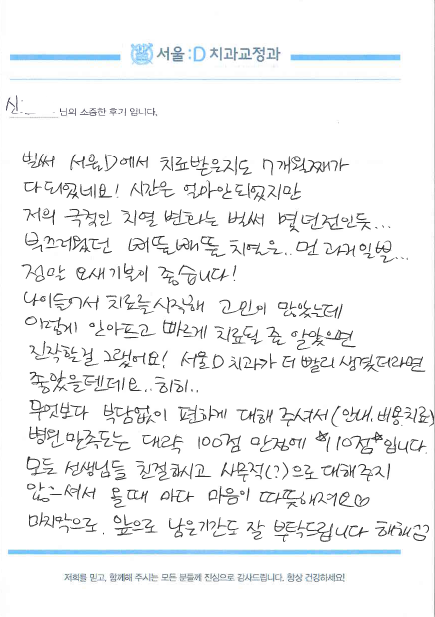 서울:D 치과교정과
신 님의 소중한 후기 입니다.
벌써 서울D에서 치료받은지도 7개월째가
다되었네요! 시간은 얼마안되었지만
저의 극적인 치열 변화는 벌써 몇년전인듯...
부끄러웠던 삐뚤빼뚤 치열은.. 먼 과거일뿐...
정말 요새기분이 좋습니다!
나이들어서 치료를시작해 고민이 많았는데
이렇게 안아프고 빠르게 치료될 줄 알았으면
진작할걸 그랬어요! 서울D치과가 더 빨리 생겼더라면
좋았을텐데요..히히..
무엇보다 부담없이 편하게 대해 주셔서 (안내, 비용, 치료)
병원만족도는 대략 100점 만점에 *110점* 입니다.
모든 선생님들 친절하시고 사무적(?)으로 대해주지
않으셔서 올때 마다 마음이 따뜻해져요♡
마지막으로, 앞으로 남은기간도 잘 부탁드립니다
저희를 믿고, 함께해 주시는 모든 분들께 진심으로 감사드립니다. 항상 건강하세요!